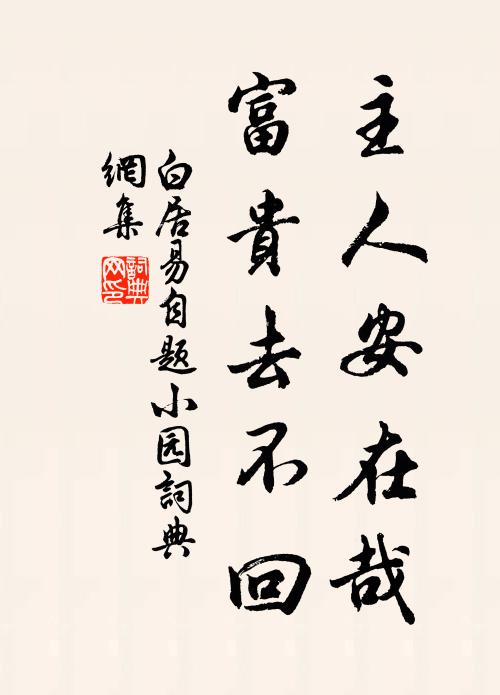 主人安在哉
富貴去不回
白居易自题小园詞典
網集
詞典網印